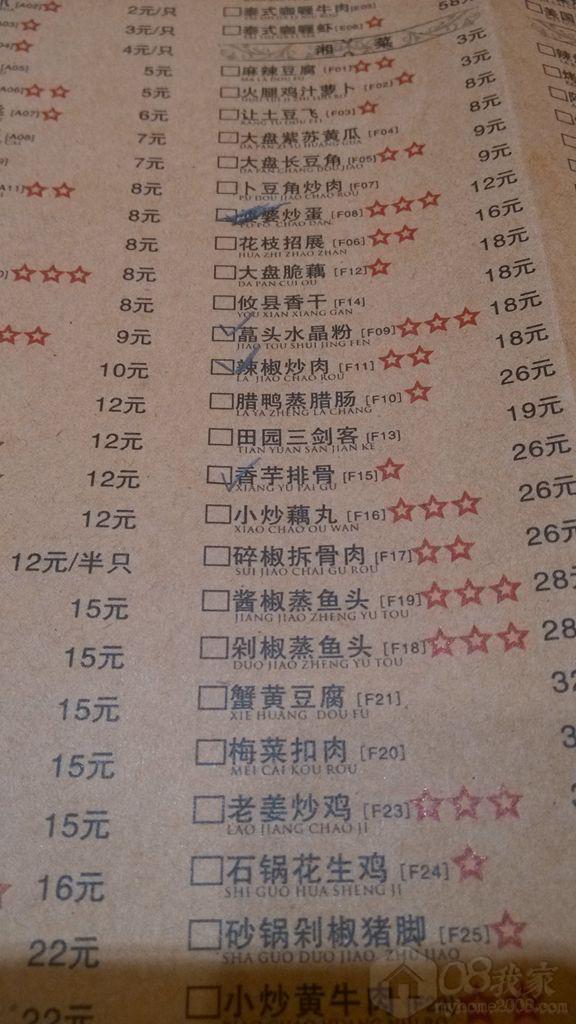 [A02]☆ 2元/只 □泰式咖喱牛肉[E05] 58元
[A03]☆ 3元/只 □泰式咖喱虾[E06]☆
[A04]☆ 4元/只 湘 菜 3元
[A05] 5元 □麻辣豆腐[F01]☆☆ 3元
MA LA DOU FU
[A06]☆☆ 5元 □火腿鸡汁萝卜[F02]☆ 8元
[A07]☆ 6元 □让土豆飞[F03]☆ 8元
RANG TU DOU FEI
[A08] 7元 □大盘紫苏黄瓜[F04] 9元
DA PAN ZI SU HUANG GUA
7元 □大盘长豆角[F05]☆☆ 9元
DA PAN CHANG DOU JIAO
[A11]☆☆ 8元 □卜豆角炒肉[F07] 12元
PU DOU JIAO CHAO ROU
8元 □婆婆炒蛋[F08]☆☆☆ 16元
PO PO CHAO DAN
8元 □花枝招展[F06]☆☆ 18元
HUA ZHI ZHAO ZHAN
☆☆☆ 8元 □大盘脆藕[F12]☆ 18元
DA PAN CUI OU
8元 □攸县香干[F14] 18元
YOU XIAN XIANG GAN
☆☆ 9元 □藠头水晶粉[F09]☆☆☆ 18元
JIAO TOU SHUI JING FEN
10元 □辣椒炒肉[F11]☆☆ 26元
LA JIAO CHAO ROU
12元 □腊鸭蒸腊肠[F10]☆ 19元
LA YA ZHENG LA CHANG
12元 □田园三剑客[F13] 26元
TIAN YUAN SAN JIAN KE
12元 □香芋排骨[F15]☆ 26元
XIANG YU PAI GU
12元 □小炒藕丸[F16]☆☆☆ 26元
XIAO CHAO OU WAN
12元/半只 □碎椒拆骨肉[F17]☆☆ 28元
SUI JIAO CHAI GU ROU
15元 □酱椒蒸鱼头[F19]☆☆☆ 28
JIANG JIAO ZHENG YU TOU
15元 □剁椒蒸鱼头[F18]☆☆☆
DUO JIAO ZHENG YU TOU
15元 □蟹黄豆腐[F21]
XIE HUANG DOU FU
15元 □梅菜扣肉[F20]
MEI CAI KOU ROU
15元 □老姜炒鸡[F23]☆☆☆
LAO JIANG CHAO JI
16元 □石锅花生鸡[F24]☆
SHI GUO HUA SHENG JI
22元 □砂锅剁椒猪脚[F25]☆
SHA GUO DUO JIAO ZHU JIAO
22元 □小炒黄牛肉
08我家
myhome2008.com